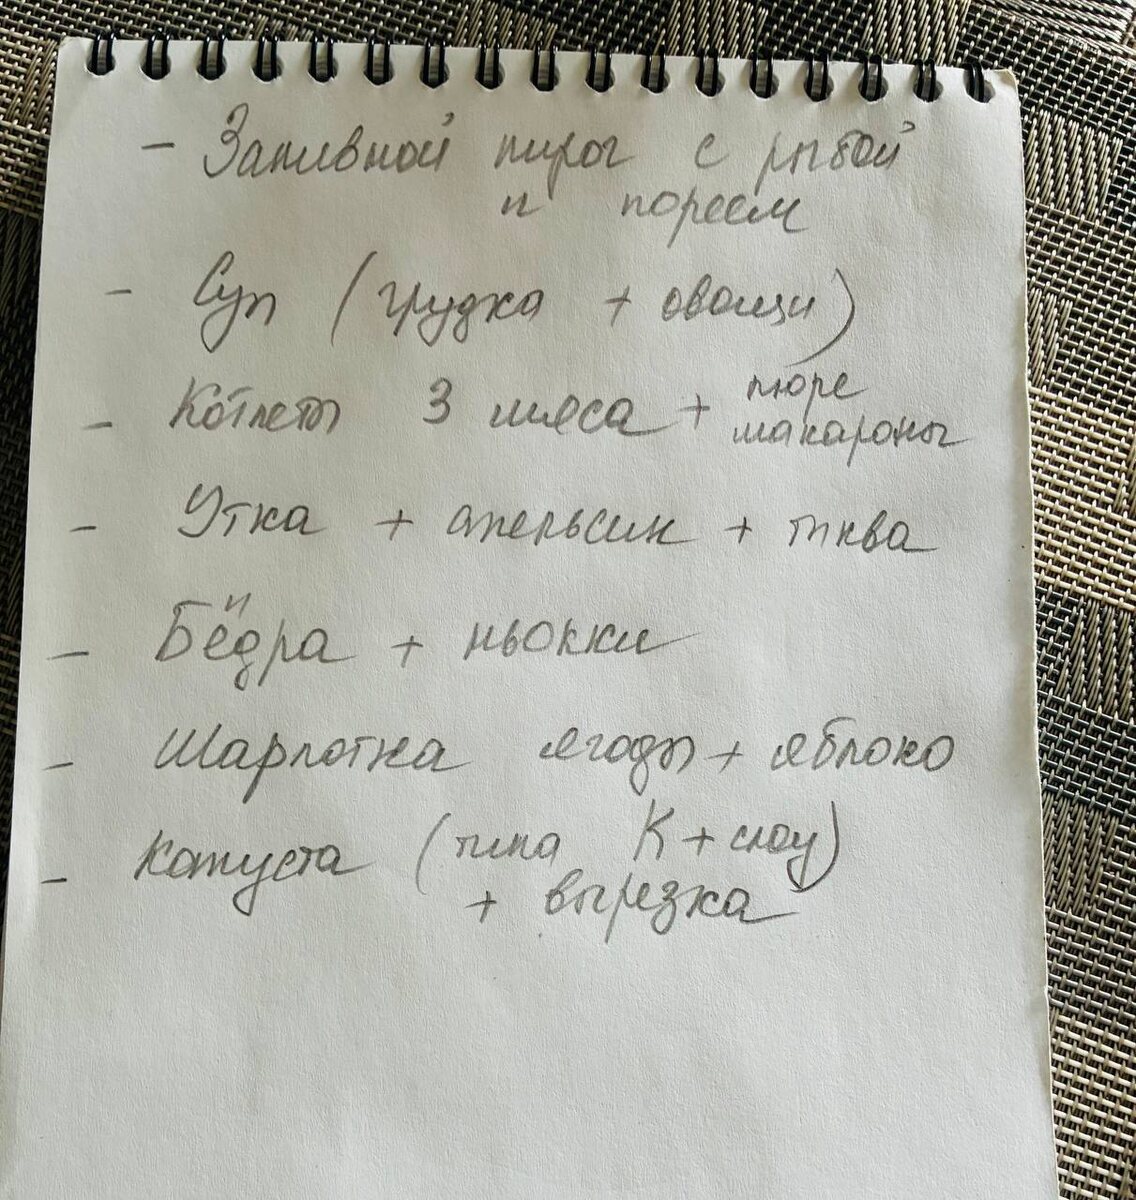 - Заливной пирог с рыбой
и пореем
- Суп (грудка + овощи)
- Котлеты 3 мяса + пюре
макароны
- Утка + апельсин + тыква
- Бёдра + ньокки
- Шарлотка ягоды + яблоко
- Капуста (типа К + слоу)
+ вырезка